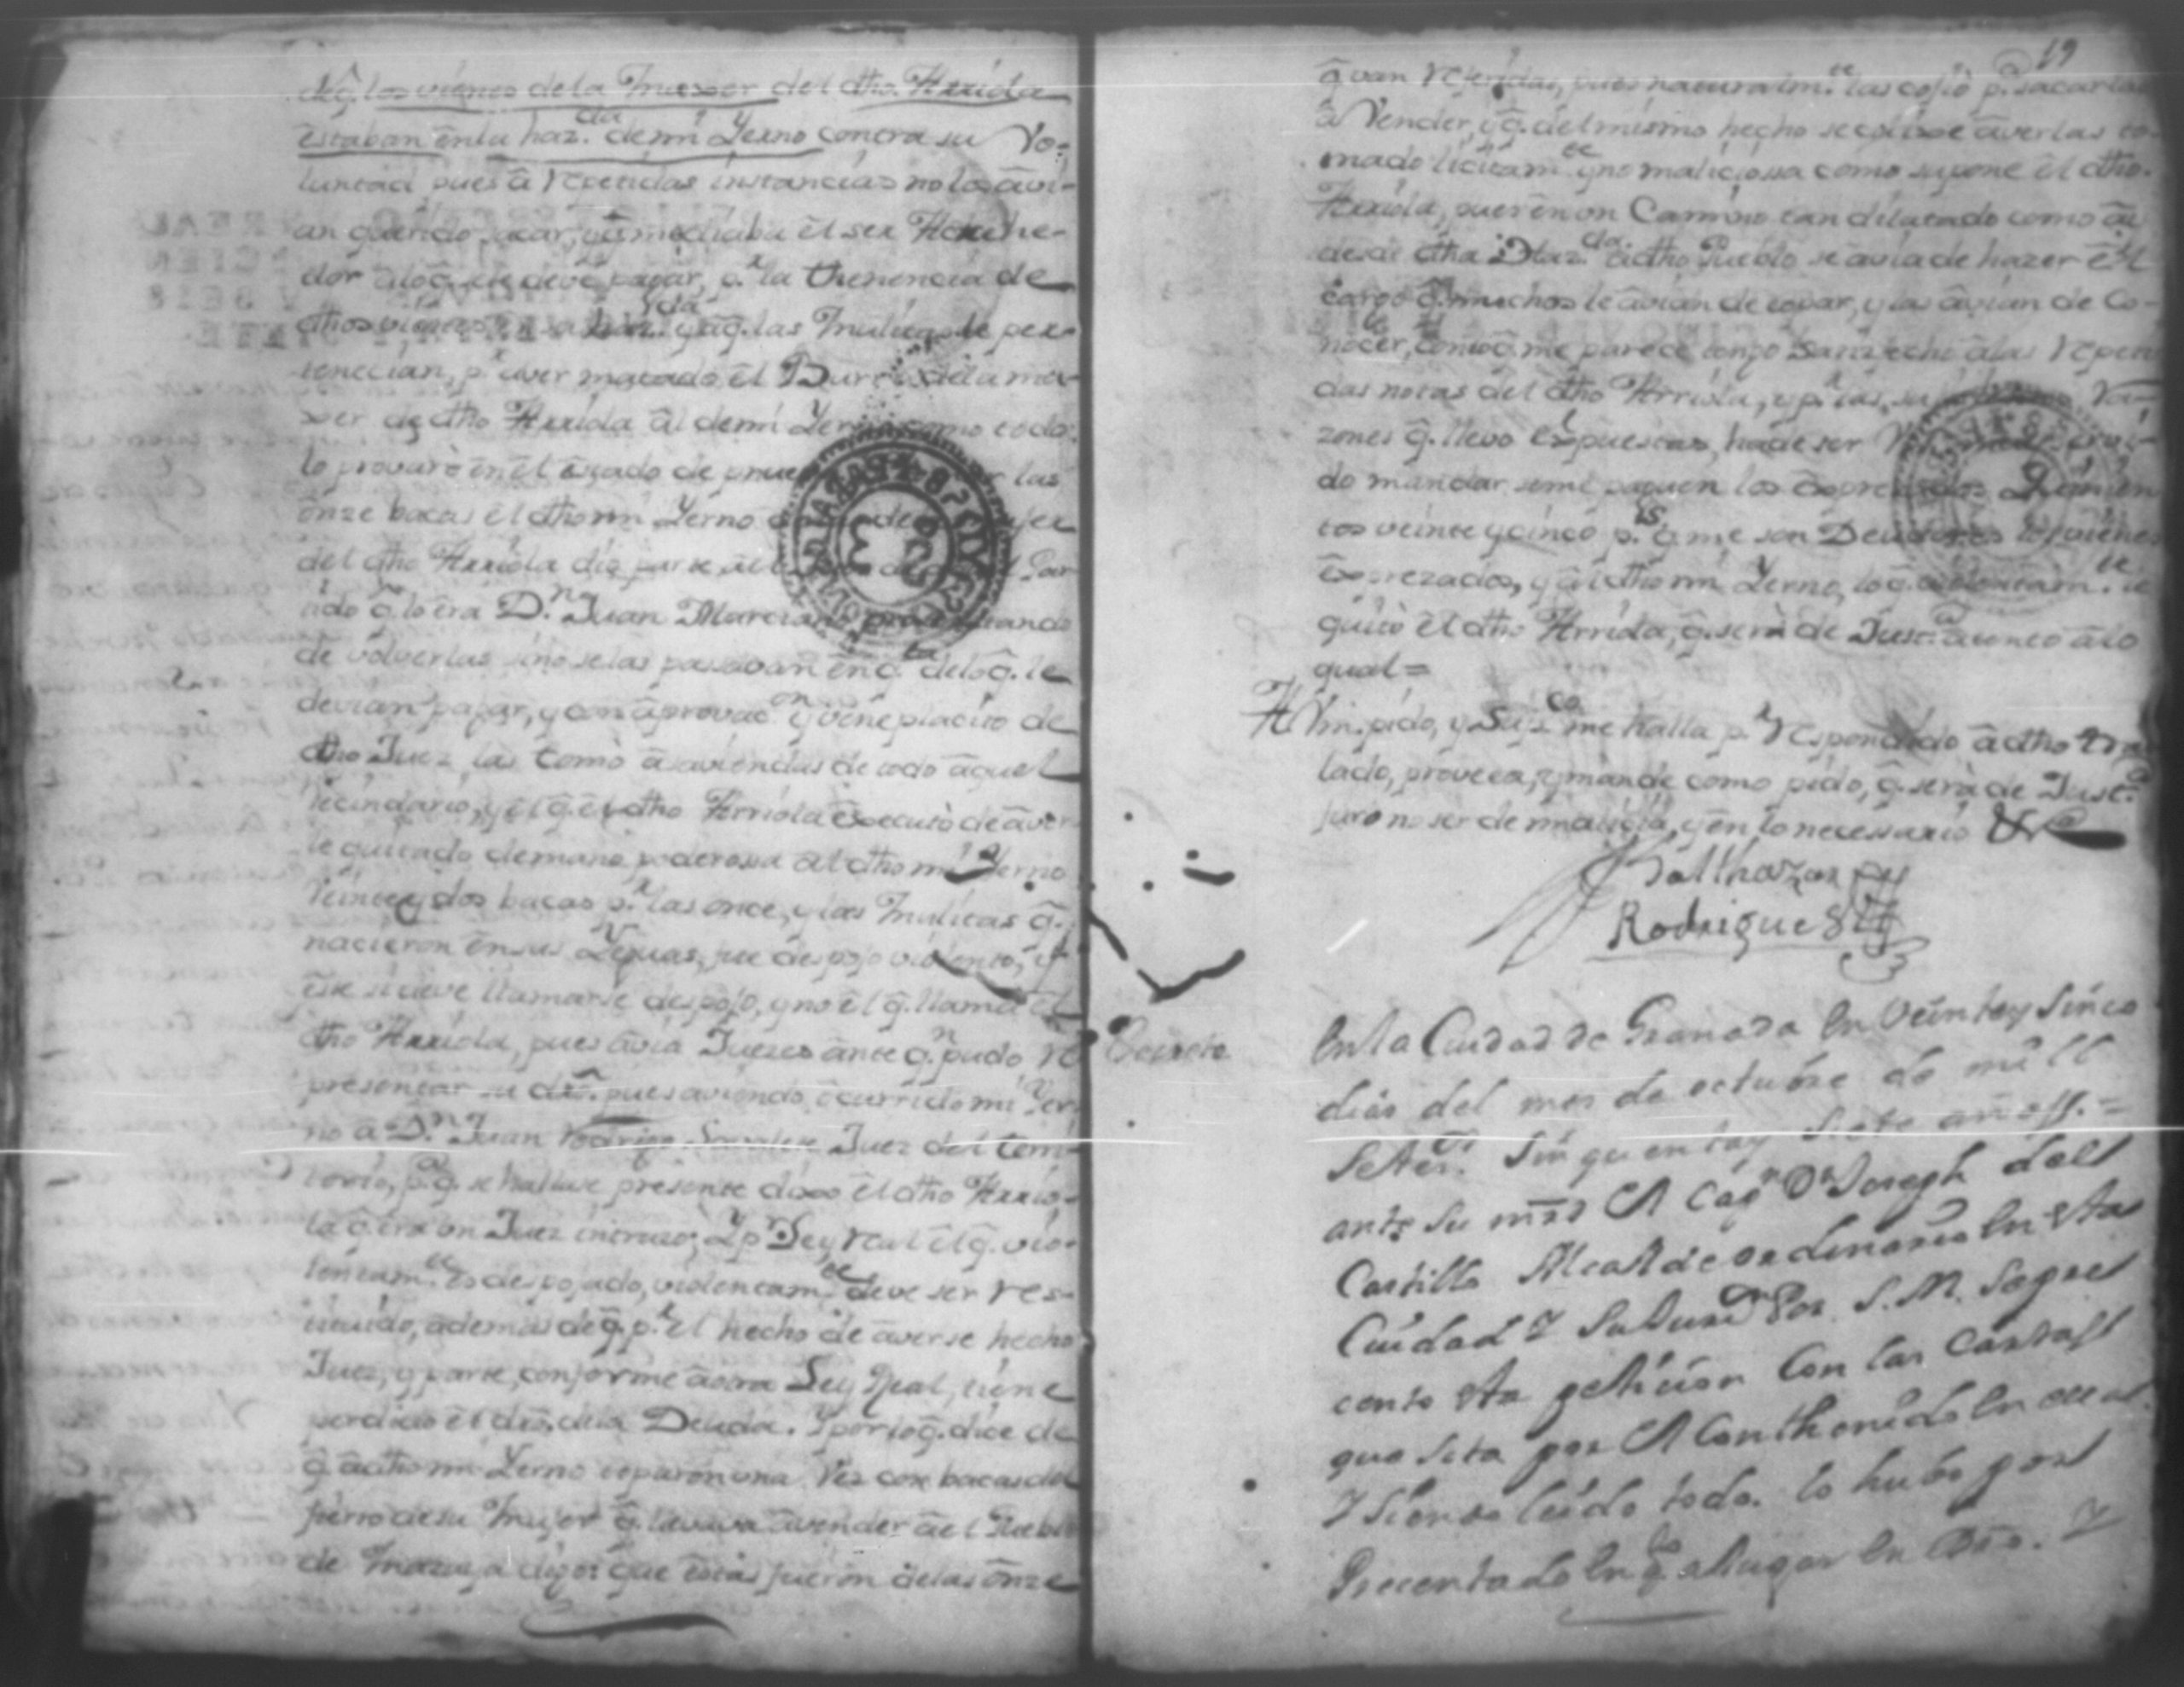 de q̃. los vienes de la Muxer del dho. Arriola
estaban en la haz.da de mi Yerno contra su Vo-
luntad pues â repetidas instancias no los avi-
an querido sacar,
dor â lo q̃. se le deve pagar, p.r la thenencia de
dhos vienes en su haz.da y â q̃. las Mulitas le per-
tenecian, p.r aver matado el Burro de la mu-
xer de dho Arriola âl de mi Yerno como todo
lo provarè en el estado de prueva las
onze bacas el dho mi Yerno
del dho Arriola dio parte al Par-
tido q̃. lo era D.n Juan Marciano
de volverlas sino se las pasavan en q.ta de lo q̃. le
devian pagar, y con aprovac.on y veneplacito de
dho Juez las tomò â saviendas de todo aquel
vecindario, y el q̃. el dho Arriola executò de aver
le quitado de mano poderossa âl dho mi Yerno
veinte y dos bacas p.r las once, y las Mulitas q̃.
nacieron en sus Yeguas, fue despojo violento, y
este si deve llamarse despojo, y no el q̃. llama el
dho Arriola, pues avia Juezes ante q.n pudo re
presentar su dro. pues aviendo ocurrido mi Yer
no â D.n Juan Rodrigo Juez del terri
torio, p.a q̃. se hallase presente dixo el dho Arrio-
la q̃. era un Juez intruzo, y p.r Ley real el q̃. vio-
lentam.te es despojado, violentam.te deve ser res-
tituido, ademas de q̃. p.r el hecho de averse hecho
Juez, y parte, conforme â otra Ley Real, tiene
perdido el dro. de la Deuda. Y por lo q̃. dice de
q̃. â dho mi Yerno toparon una Vez con bacas del
fierro de su Mujer q̃. llevava â vender âel Pueblo
de Masaya digo: que estas fueron de las onze
19
q̃. van referidas, pues naturalm.te las cojio p.a sacarlas
â Vender, y q̃. del mismo hecho se colixe averlas to-
mado licitam.te y no maliciossa como supone el dho.
Arriola, pues en un Camino tan dilatado como ay
desde dha Haz.da â dho Pueblo se avia de hazer el
cargo q̃. muchos le avian de topar, y las avian de Co-
nocer, conq̃. me parece tengo satisfecho â las repeti
das notas del dho Arriola, y p.r las Ra-
zones q̃. llevo expuestas, ha de ser Vm. mui servi-
do mandar se me paguen los expresados Quinien
tos veinte y cinco p.s q̃. me son Deudores los vienes
exprezados, y âl dho mi Yerno, lo q̃. violentam.te le
quitò el dho Arriola, q̃. serà de Just.a atento â lo
qual =
A Vm. pido, y sup.co me halla p.r respondido â dho tras
lado, provea, y mande como pido, q̃. serà de Just.a
juro no ser de malicia, y en lo necessario &a
Balthazar
Rodrigues
Decreto
En la Ciudad de Granada en Veintey Sinco
dias del mes de octubre de mill
Setes.os Sinquentay Siete años. =
ante su mrd el Cap.n Dn Joseph del
Castillo Alcalde ordinario en esta
Ciudad y su Juris.on Por S. M. Se pre
cento esta peticion Con las Cartas
que sita por el Conthenido en ella
y siendo leido todo. lo hubo por
Precentado en q.to a lugar en dro. Y